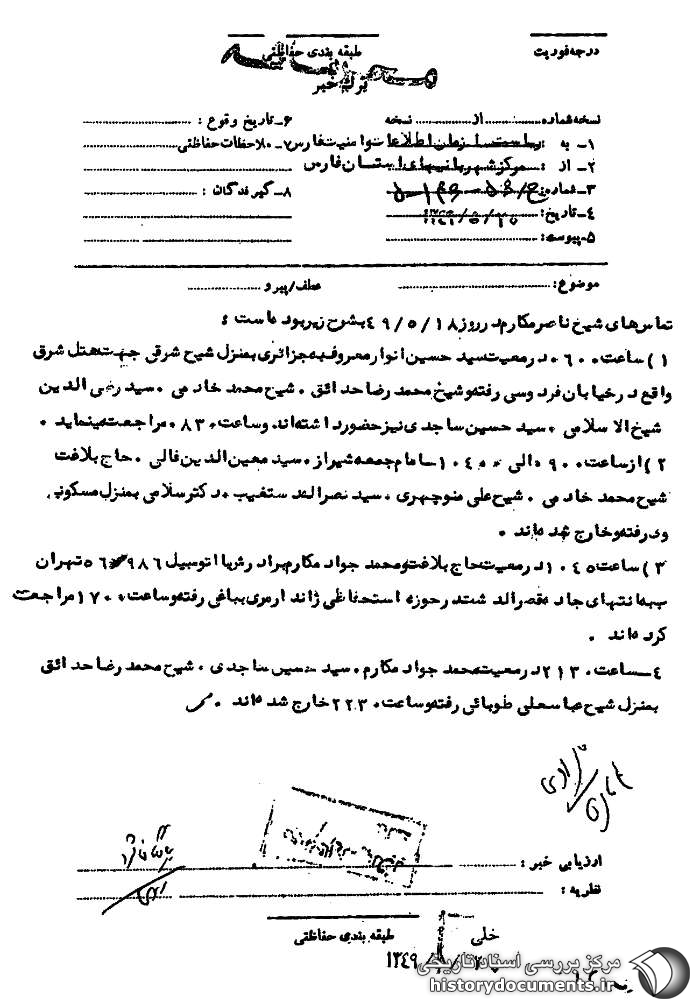 درجه فوریت
طبقه بندی حفاظتی
محرمانه
برگ خبر
نسخه شماره .......... از .......... نسخه
۶ـ تاریخ وقوع :
۱ـ به : ریاست سازمان اطلاعات و امنیت فارس
۷ـ ملاحظات حفاظتی
۲ـ از : مرکز شهربانیهای استان فارس
۳ـ شماره:
۸ـ گیرندگان :
۴ـ تاریخ:
۵ـ پیوست:
موضوع:
عطف/پیرو
تماسهای شیخ ناصر مکارم در روز ۴۹/۵/۱۸ بشرح زیر بوده است :
۱) ساعت ۰۶۰۰ در معیت سید حسین انوار معروف به جزائری بمنزل شیخ شرقی جهت هتل شرق
واقع در خیابان فردوسی رفته و شیخ محمد رضا حدائق ۰ شیخ محمد خادمی ۰ سید رضی الدین
شیخ الاسلامی ۰ سید حسین ساجدی نیز حضور داشته‌اند و ساعت ۰۸۳۰ مراجعت مینماید ۰
۲) از ساعت ۰۹۰۰ الی ۱۰۴۰ امام جمعه شیراز ۰ سید معین الدین فالی ۰ حاج بلاغت
شیخ محمد خادمی ۰ شیخ علی منوچهری ۰ سید نصراله دستغیب ۰ دکتر سلامی بمنزل مسکونی
وی رفته و خارج شده‌اند ۰
۳) ساعت ۱۰۴۵ در معیت حاج بلاغت و محمد جواد مکارم برادرش با اتومبیل ۵۶۹۸۶ تهران
ب به انتهای جاده قصرالدشت در حوزه استحفاظی ژاندارمری بباغی رفته و ساعت ۱۷۰۰ مراجعت
کرده‌اند ۰
۴ـ ساعت ۲۱۳۰ در معیت محمد جواد مکارم ۰ سید حسین ساجدی ۰ شیخ محمد رضا حدائق
بمنزل شیخ عباسعلی طوبائی رفته و ساعت ۲۲۳۰ خارج شده‌اند ۰
ارزیابی خبر :
نظریه :
طبقه بندی حفاظتی
خلی
۱۳۴۹
مرکز بررسی اسناد تاریخی
historydocuments.ir